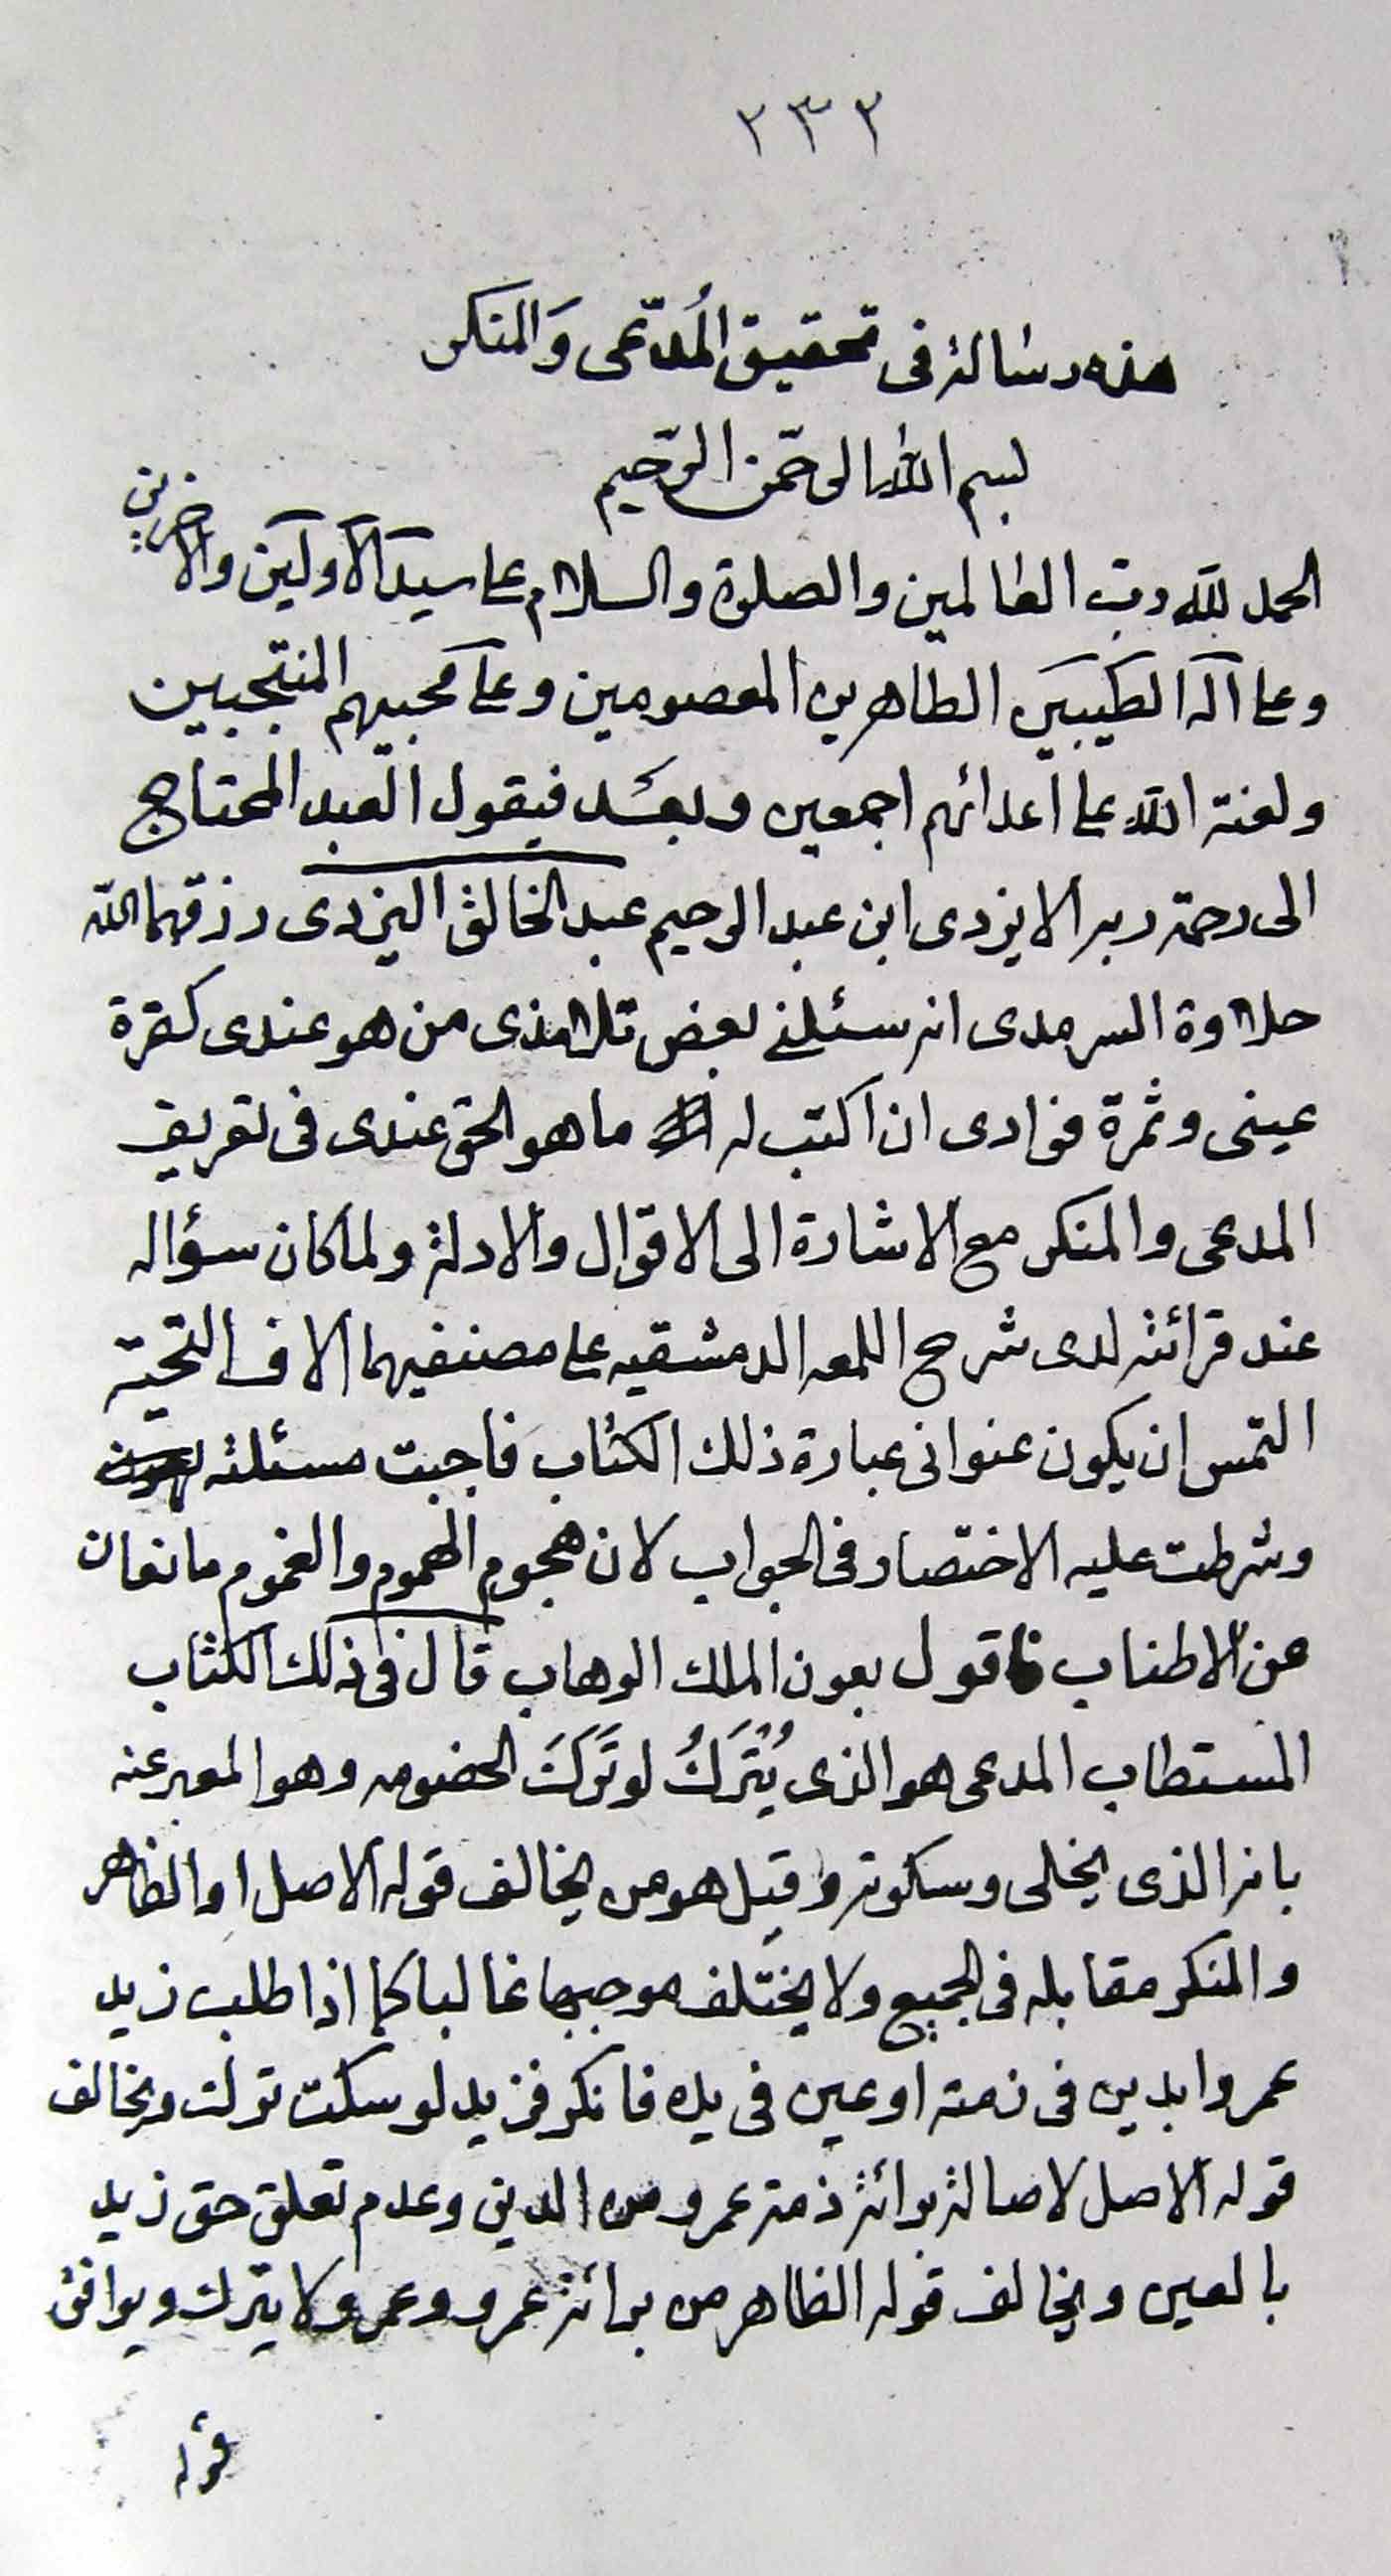 ٢٣٢
هذه رسالة فى تحقيق المُدّعى وَالمنكر
بسم الله الرحمن الرحيم
الحمد لله رب العالمين والصلوة والسلام على سيد الاولين والاخرين
وعلى آله الطيبين الطاهرين المعصومين وعلى محبيهم المنتجبين
ولعنة الله على اعدائهم اجمعين وبعد فيقول العبد المحتاج
الى رحمة ربه الايزدى ابن عبد الرحيم عبد الخالق اليزدى رزقهما الله
حلاوة السرمدى انه سئلنى بعض تلامذى من هو عندى كقرة
عينى وثمرة فوادى ان اكتب له ما هو الحق عندى فى تعريف
المدعى والمنكر مع الاشارة الى الاقوال والادلة ولما كان سؤاله
عند قرائته لدى شرح اللمعه الدمشقيه على مصنفيهما الاف التحية
التمس ان يكون عنوانى عبارة ذلك الكتاب فاجبت مسئلته
وشرطت عليه الاختصار فى الجواب لان هجوم الهموم والغموم مانعان
عن الاطناب فاقول بعون الملك الوهاب قال فى ذلك الكتاب
المستطاب المدعى هو الذى يُتْرَكُ لو تَرَكَ الخصومه وهو المعبر عنه
بانه الذى يخلى وسكوته وقيل هو من يخالف قوله الاصل او الظاهر
والمنكر مقابله فى الجميع ولا يختلف موجبها غالبا كما اذا طلب زيد
عمروا بدين فى ذمته او عين فى يده فانكر فزيد لو سكت ترك ويخالف
قوله الاصل لاصالة برائة ذمة عمرو من الدين وعدم تعلق حق زيد
بالعين ويخالف قوله الظاهر من برائة عمرو وعمرو لا يترك ويوافق
قوله